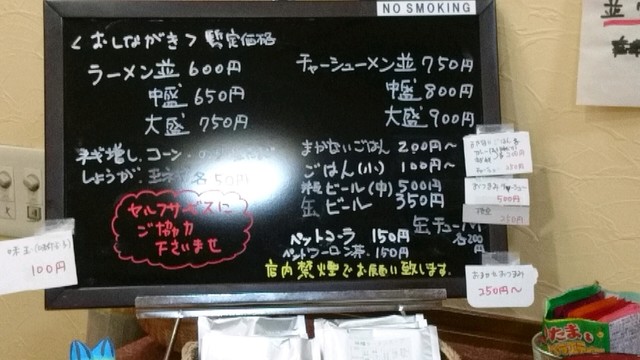 NO SMOKING
<おしながき> 暫定価格
ラーメン並 600円
中盛 650円
大盛 750円
ネギ増し、コーン・
しょうが 各50円
セルフサービスに
ご協力
下さいませ
チャーシューメン並 750円
中盛 800円
大盛 900円
まかないごはん 200円~
ごはん(小) 100円~
ビール(中) 500円
缶ビール 350円
ペットコーラ 150円
ペットウーロン茶 150円
缶チューハイ
各200円
店内禁煙でお願い致します。
味玉
100円
おつまみチャーシュー
500円
250円
おまかせおつまみ
250円~
並